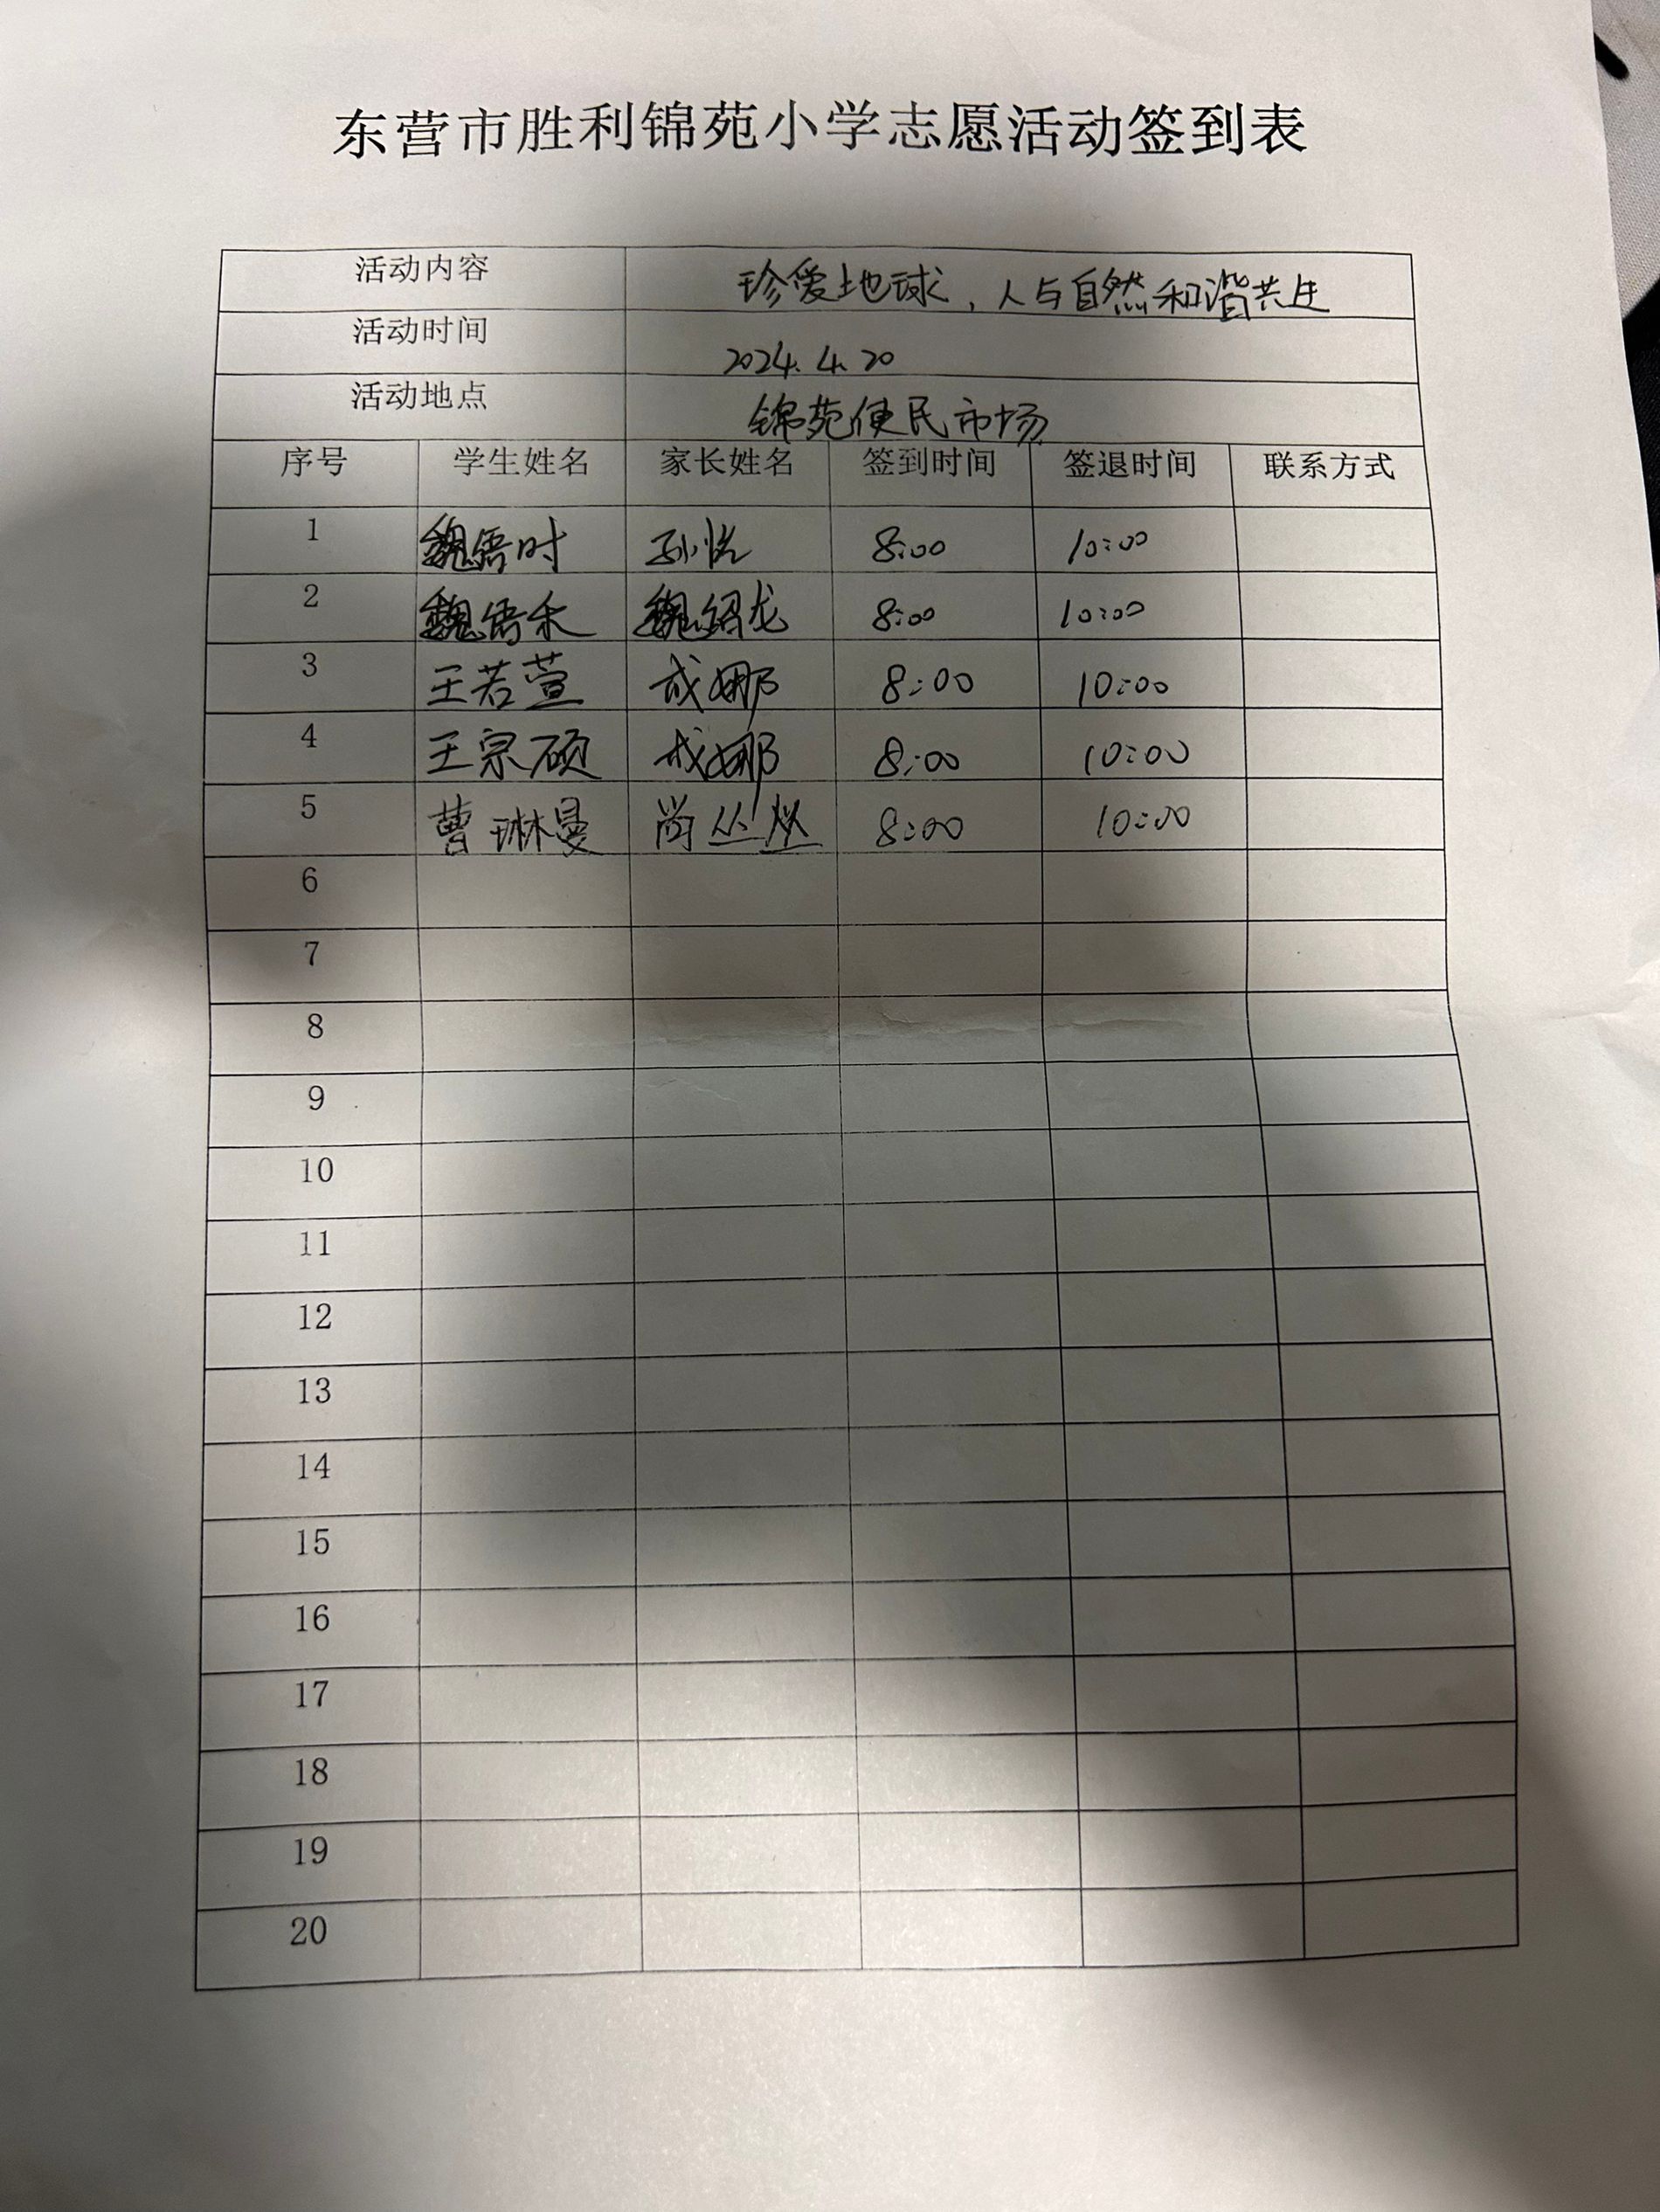 东营市胜利锦苑小学志愿活动签到表
活动内容 珍爱地球，人与自然和谐共生
活动时间 2024.4.20
活动地点 锦苑便民市场
序号 学生姓名 家长姓名 签到时间 签退时间 联系方式
1 孙悦 8:00 10:00
2 魏绍龙 8:00 10:00
3 王若萱 成娜 8:00 10:00
4 王宗硕 成娜 8:00 10:00
5 曹琳曼 8:00 10:00
6
7
8
9
10
11
12
13
14
15
16
17
18
19
20